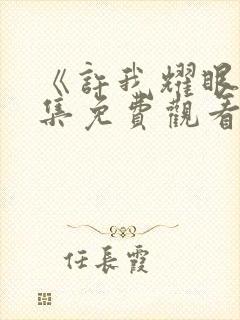 《許我耀眼
集免費觀看
任長霞